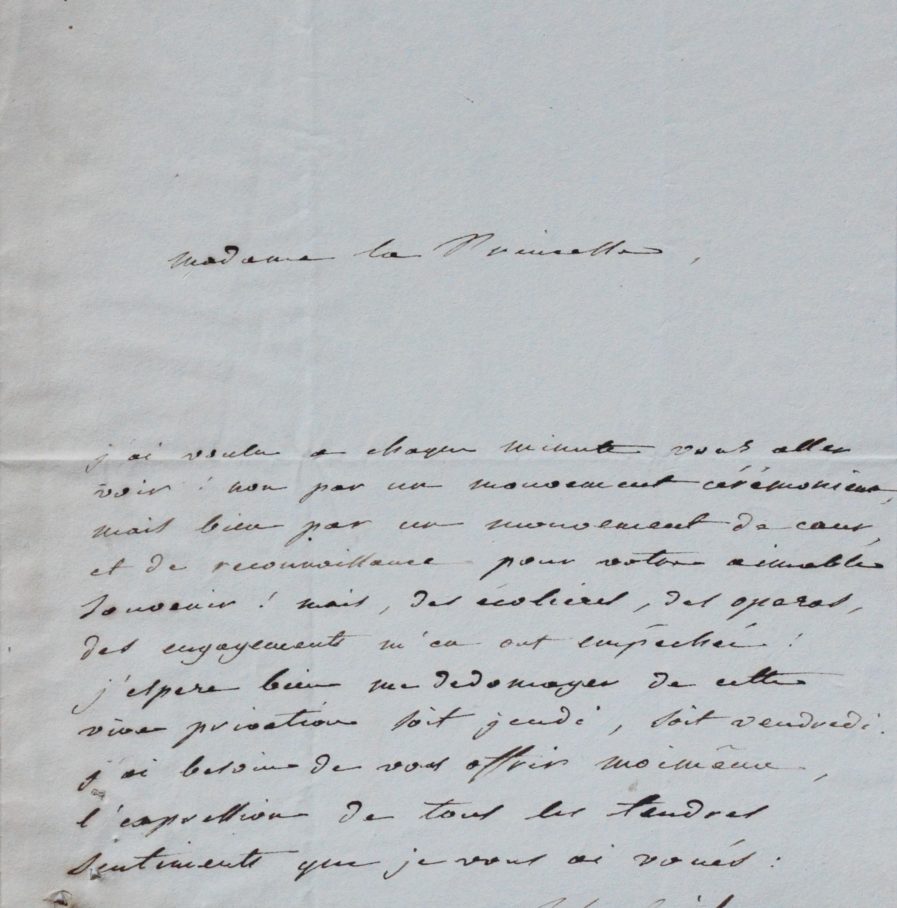 Madame la Princesse,
j'ai voulu a chaque minute vous aller
voir ! non par un mouvement cérémonieux,
mais bien par un mouvement de cœur,
et de reconnaissance pour votre aimable
souvenir ! mais, des écolieres, des operas,
des engagements m'en ont empêchée !
j'espere bien me dedomager de cette
vive privation soit jeudi, soit vendredi.
j'ai besoin de vous offrir moimême,
l'expression de tous les tendres
sentiments que je vous ai voués :